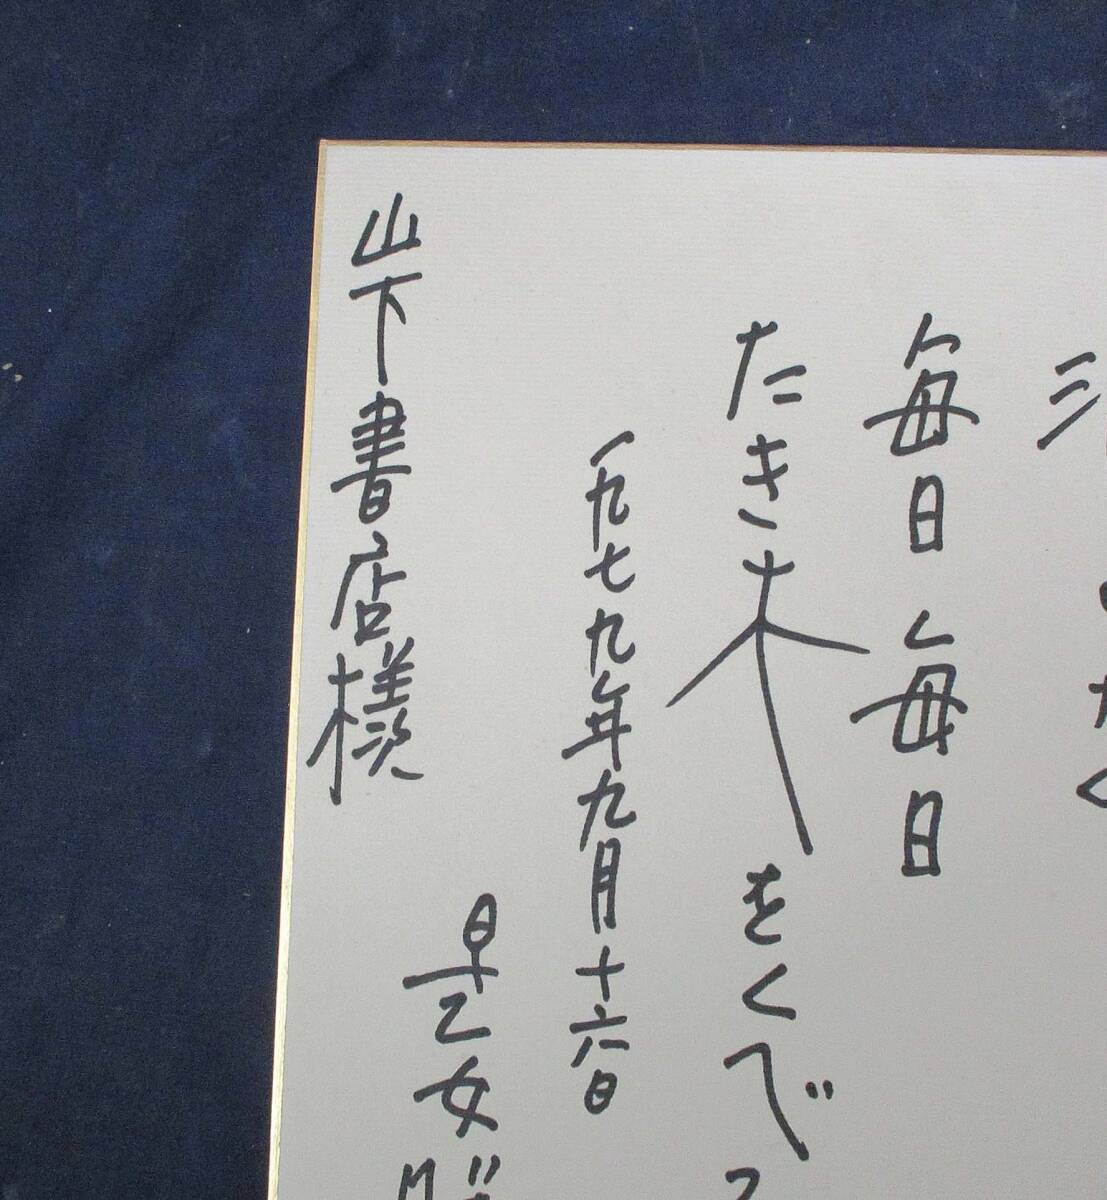 毎日毎日
たき木をくべ
一九七九年九月十六日
早乙女勝
山下書店様